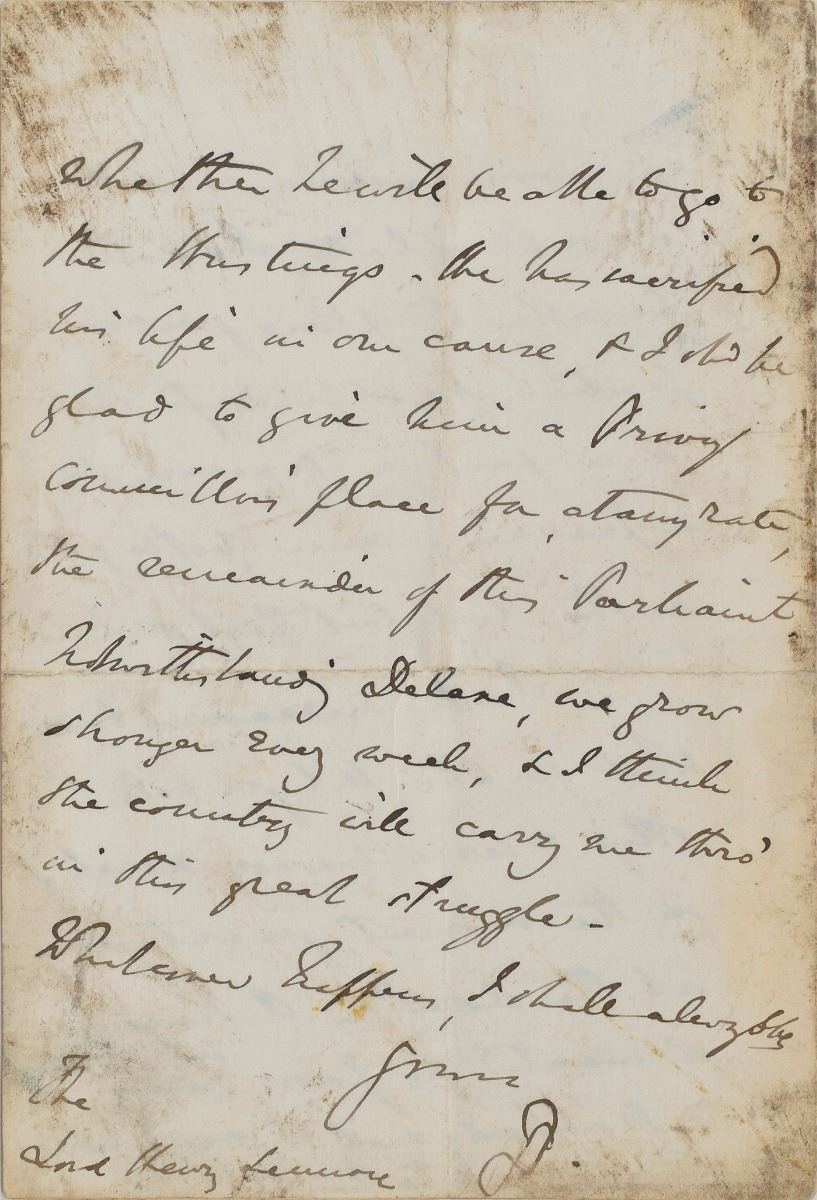 whether he will be able to go to
the Hustings - He has sacrificed
his life in our cause, & I shd be
glad to give him a Privy
Councillor's place for, at any rate,
the remainder of this Parliamt
Notwithstandg Delane, we grow
stronger every week, & I think
the country will carry me thro'
in this great struggle -
Whatever happens, I shall always be
Yours
D.
The
Lord Henry Lennox